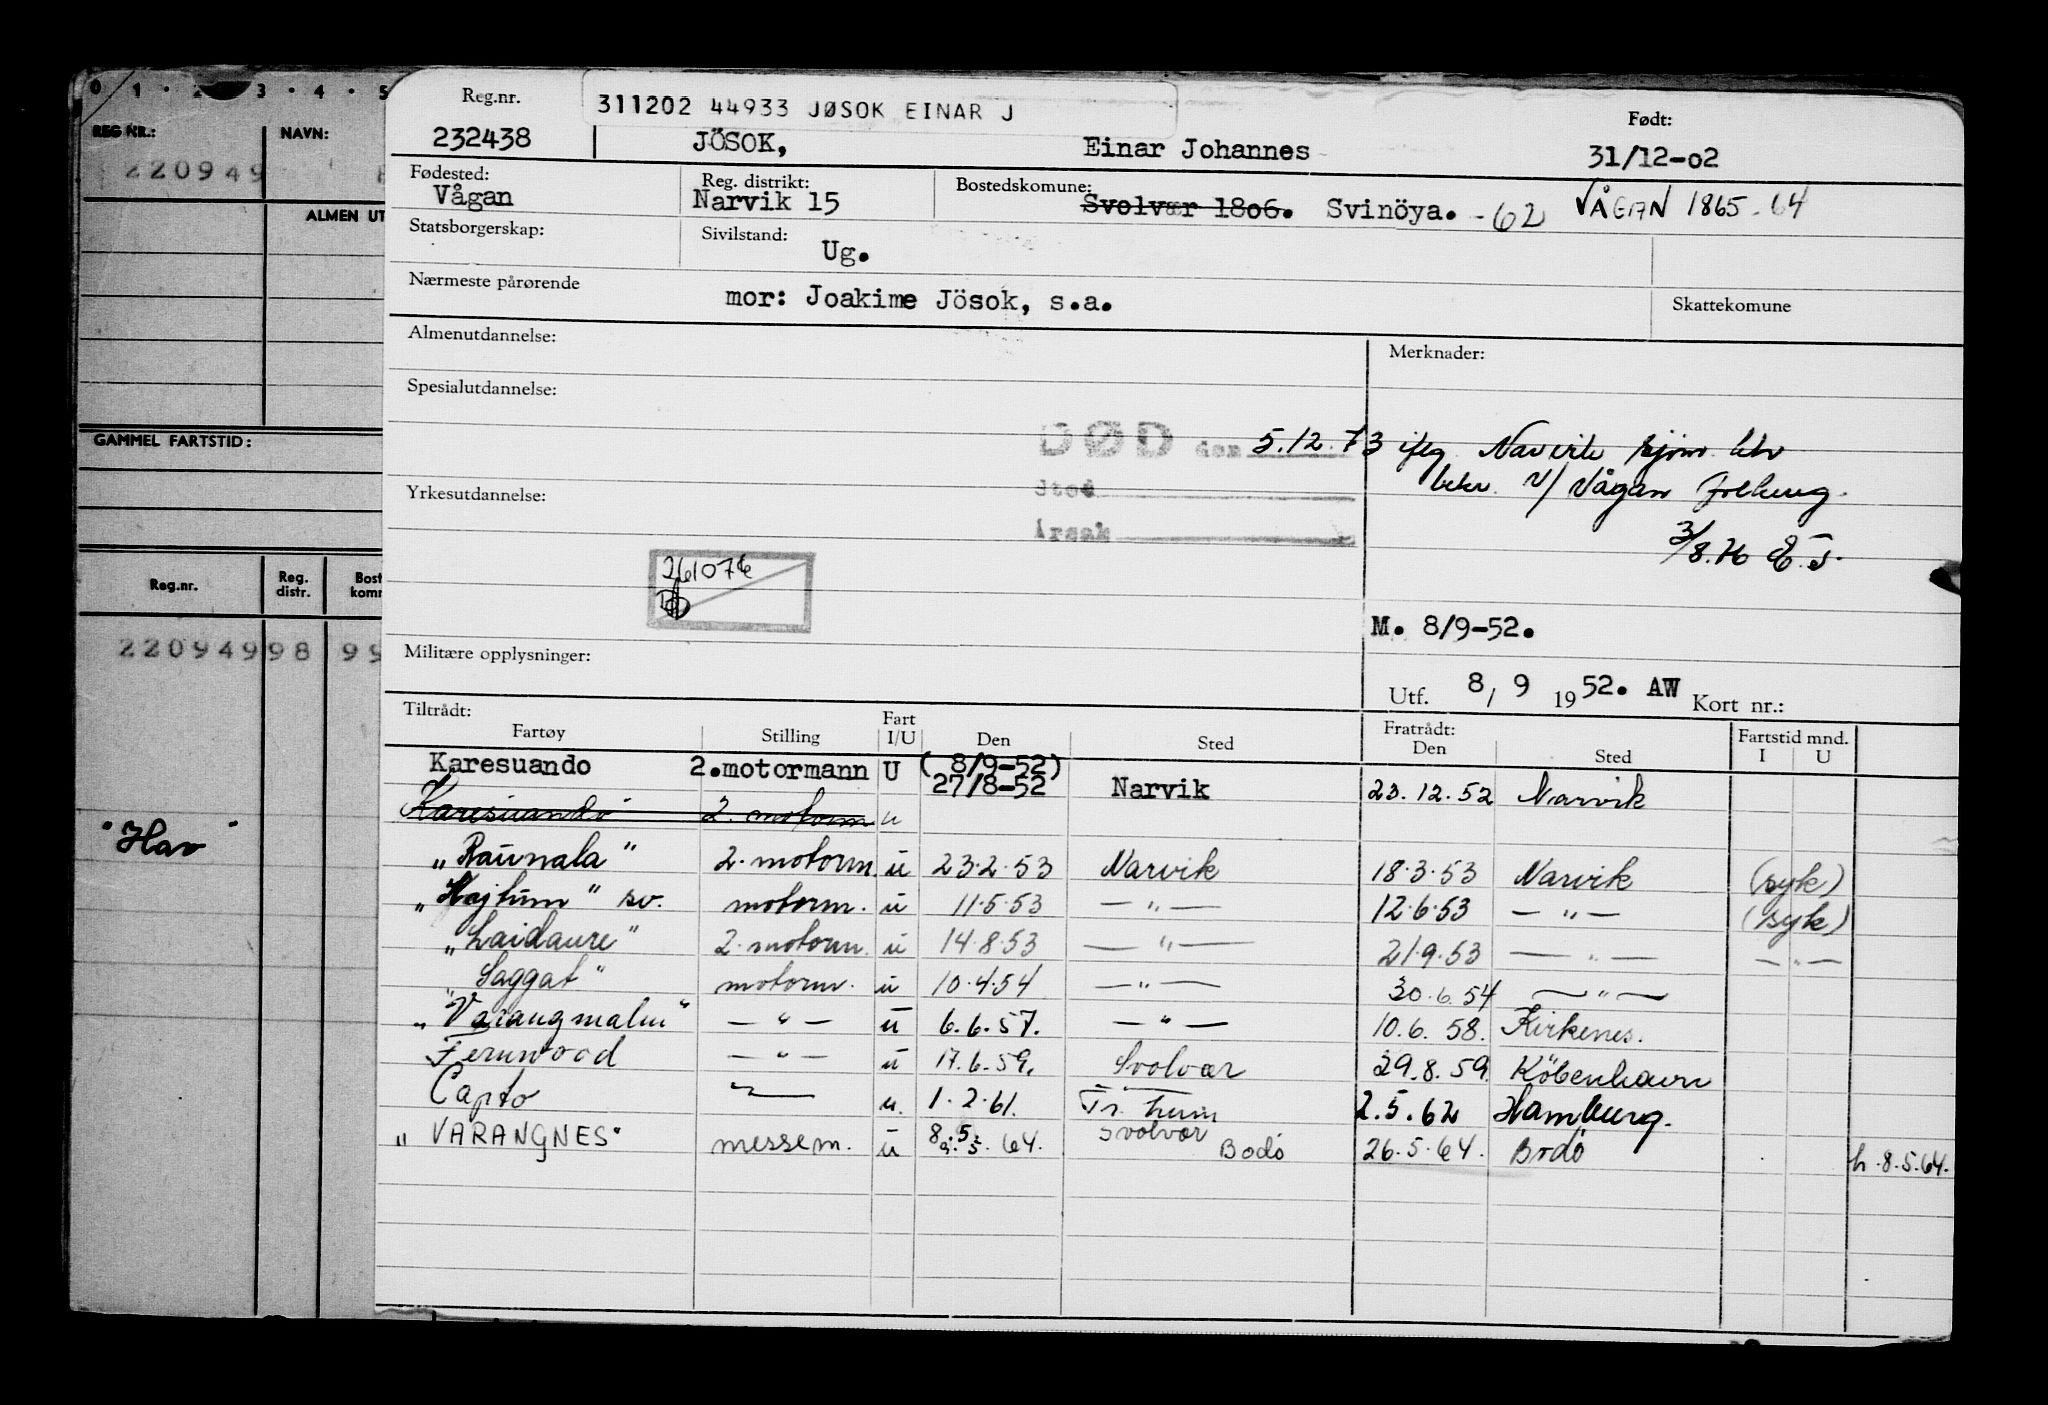 0 1 · 2 · 3 · 4 · 5
REG NR.: NAVN:
220949
ALMEN UT
GAMMEL FARTSTID:
Reg.nr. Reg. distr. Bost komm
220949 98 99
"Hav"
Reg.nr. 311202 44933 JØSOK EINAR J Født:
232438 JÖSOK, Einar Johannes 31/12-02
Fødested: Reg. distrikt: Bostedskomune:
Vågan Narvik 15 Svolvær 1806. Svinöya. -62 VÅGAN 1865-64
Statsborgerskap: Sivilstand: Ug.
Nærmeste pårørende mor: Joakime Jösok, s.a. Skattekomune
Almenutdannelse: Merknader:
Spesialutdannelse:
DØD den 5.12.73 iflg. Narvik sjøm. ktr
Sted bekr. v/ Vågan folkereg.
Yrkesutdannelse:
Årsak 3/8.76 E.J.
261076
M. 8/9-52.
Militære opplysninger:
Utf. 8/ 9 1952. AW Kort nr.:
Tiltrådt: Fratrådt:
Fartøy Stilling Fart I/U Den Sted Den Sted Fartstid mnd. I U
Karesuando 2.motormann U (8/9-52)
27/8-52 Narvik 23.12.52 Narvik
Karesuando 2. motorm u
"Raunala" 2. motorm. u 23.2.53 Narvik 18.3.53 Narvik (syk)
"Kajtum" sv. motorm. u 11.5.53 — " — 12.6.53 — " — (syk)
"Laidaure" 2. motorm. u 14.8.53 — " — 21.9.53 — " — — " —
"Saggat" motorm. u 10.4.54 — " — 30.6.54 — " —
"Varangmalm" — " — u 6.6.57. — " — 10.6.58. Kirkenes.
Fernwood — " — u 17.6.59. Svolvær 29.8.59. Köbenhavn
Capto — " — u. 1.2.61. Tr. heim 2.5.62 Hamburg.
"VARANGNES" messem. u 8.5.64. Svolvær Bodø 26.5.64. Bodø h. 8.5.64.